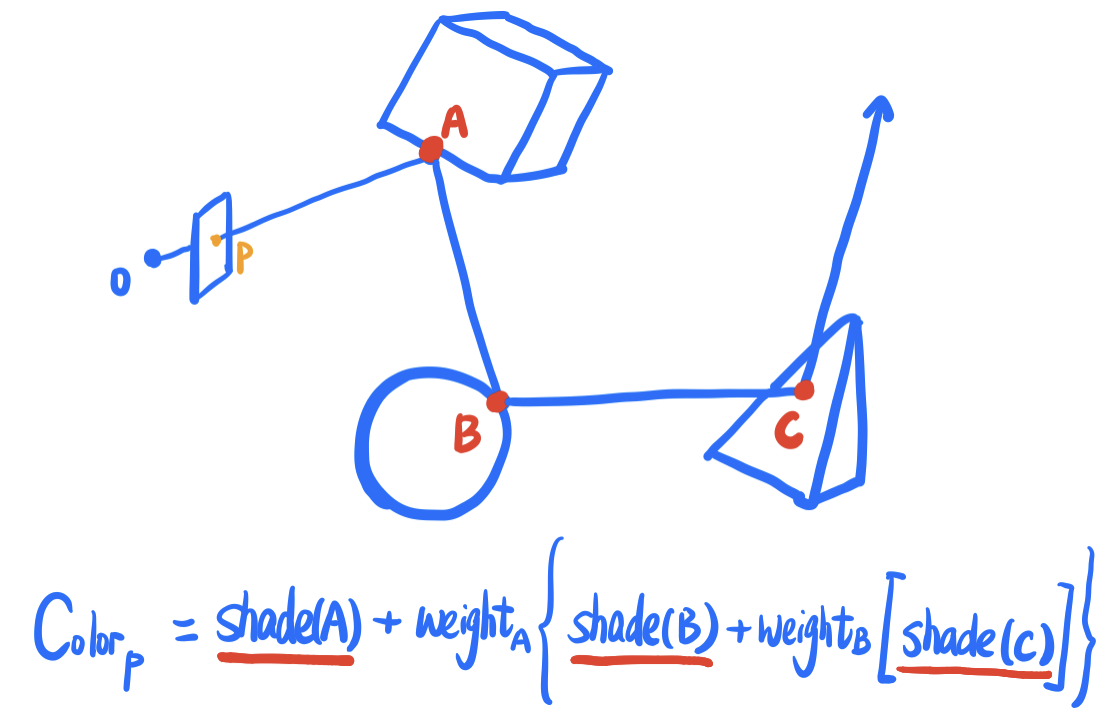 A
O
P
B
C
Color_p = shade(A) + weight_A { shade(B) + weight_B [ shade(C) ] }